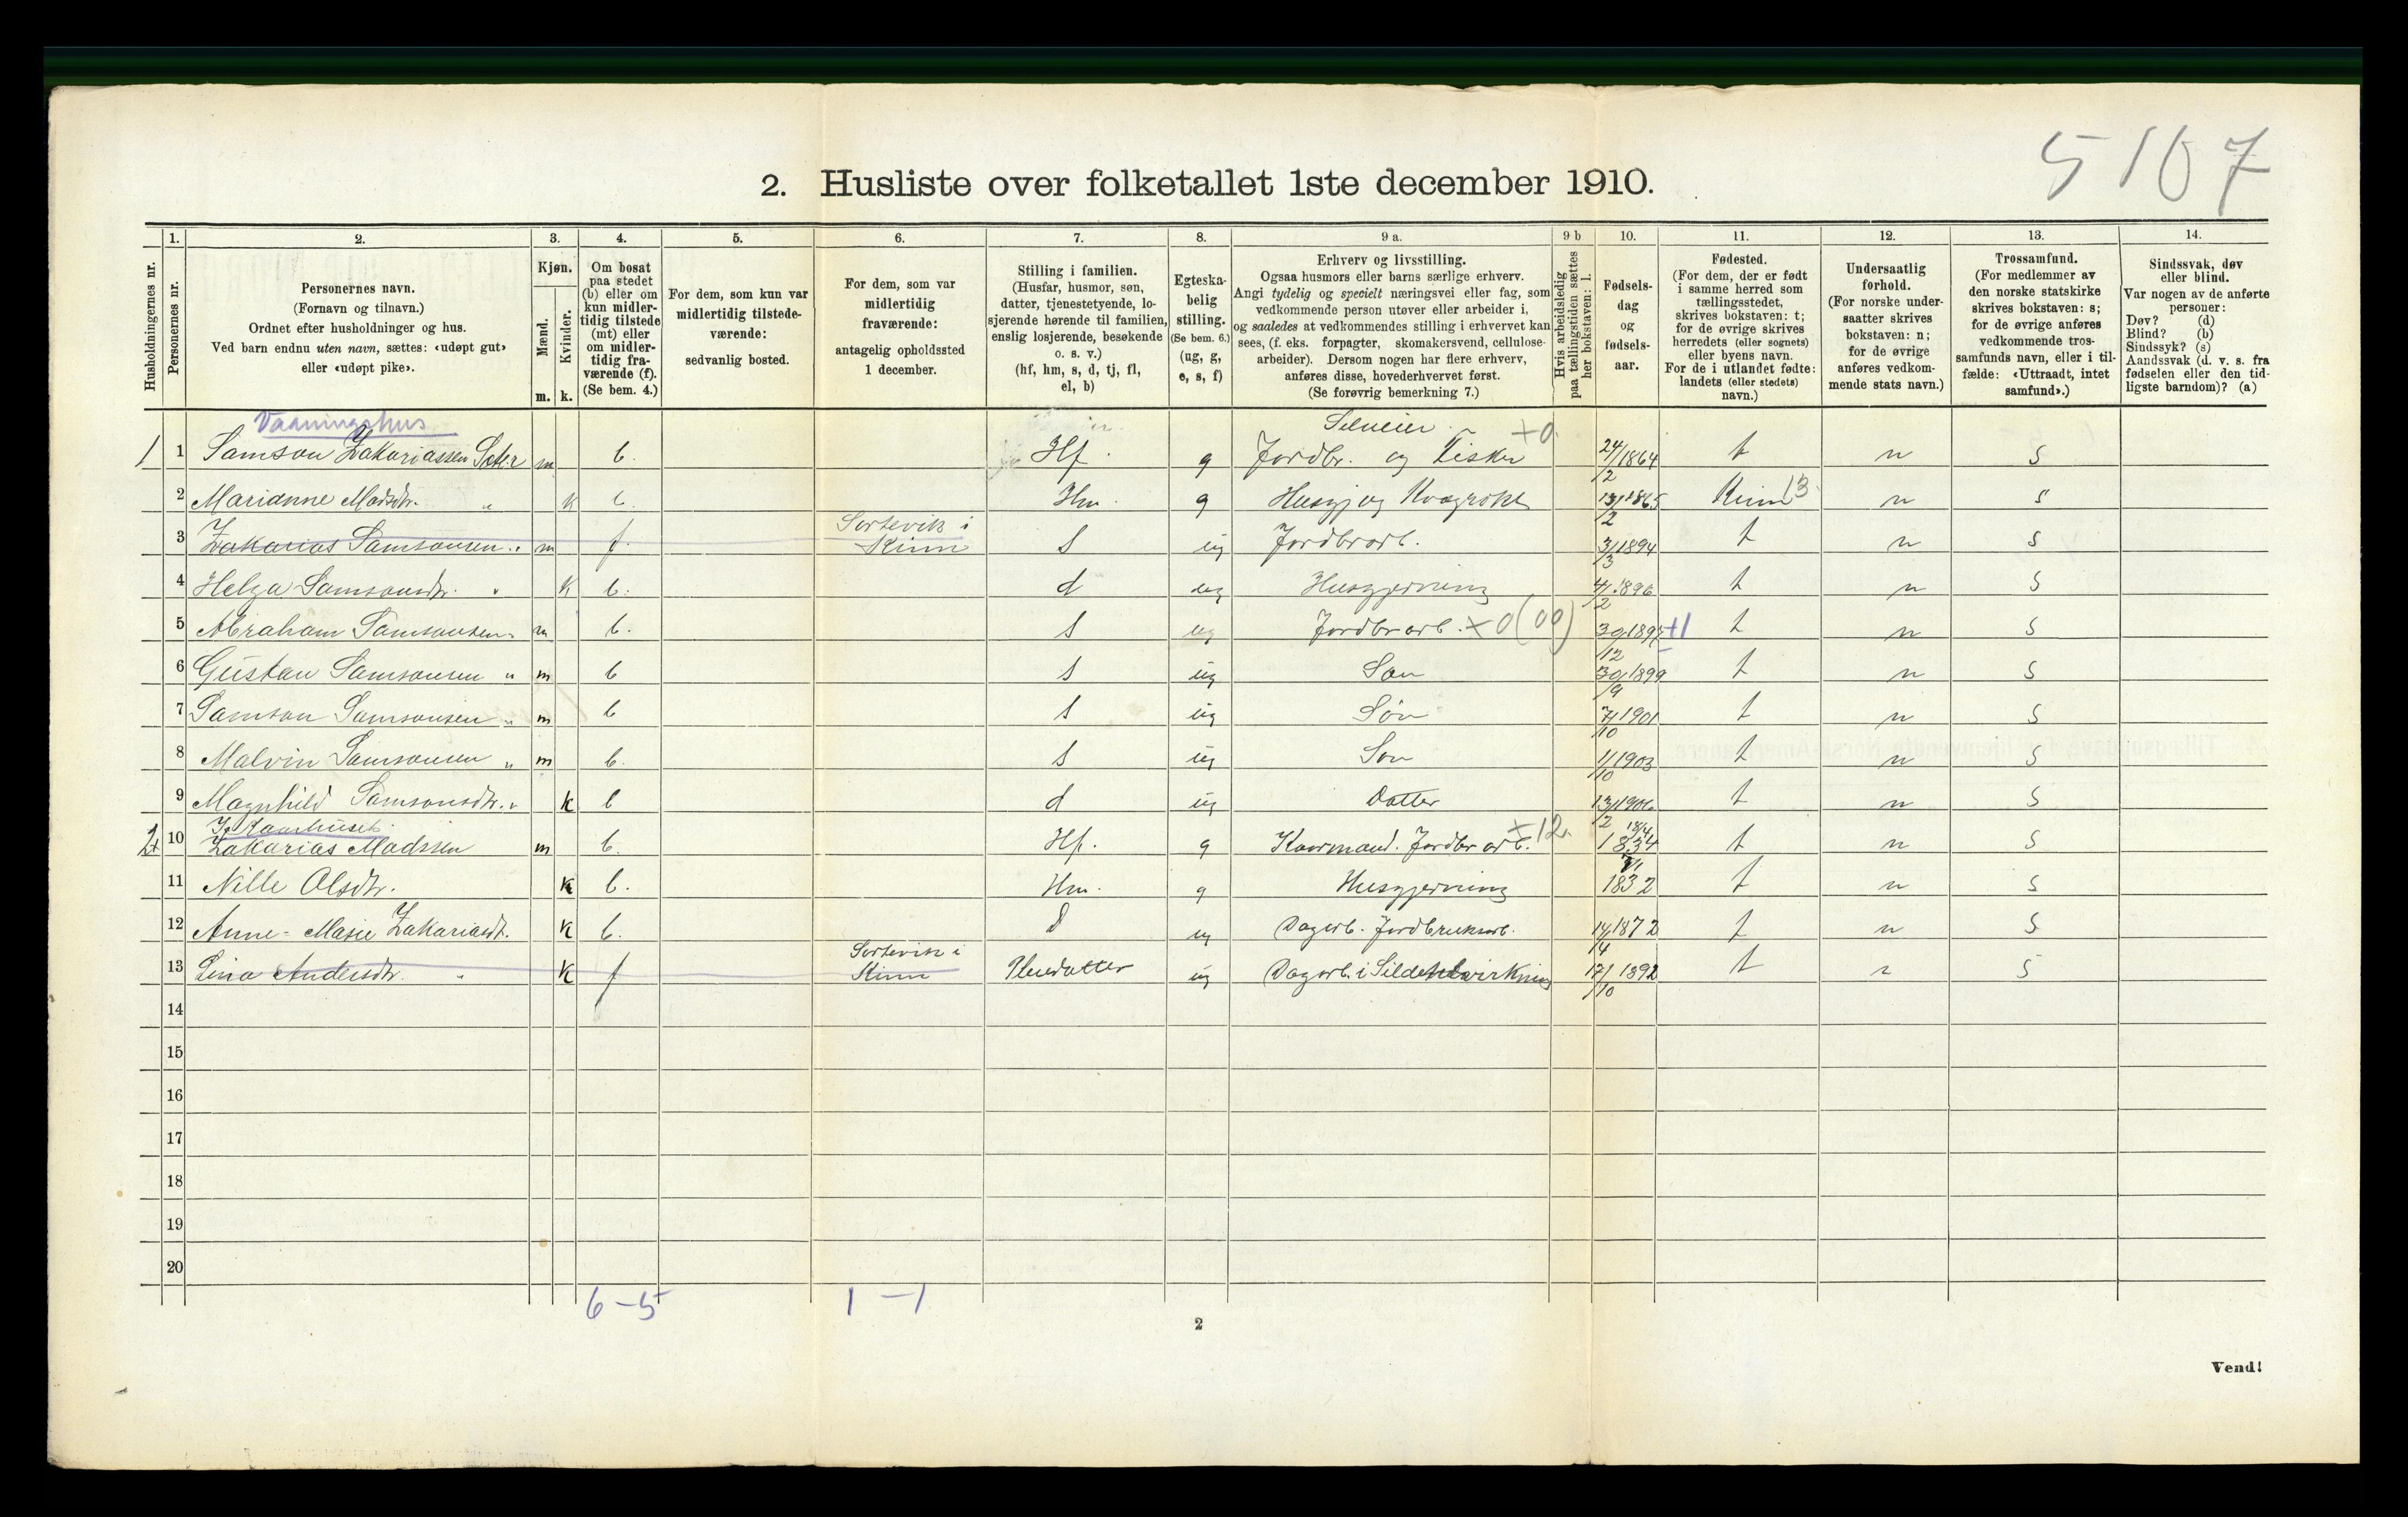 5107
2. Husliste over folketallet 1ste december 1910.
Husholdningernes nr.
1.
Personernes nr.
2.
Personernes navn.
(Fornavn og tilnavn.)
Ordnet efter husholdninger og hus.
Ved barn endnu uten navn, sættes: «udøpt gut»
eller «udøpt pike».
3.
Kjøn.
Mænd.
m.
Kvinder.
k.
4.
Om bosat
paa stedet
(b) eller om
kun midler-
tidig tilstede
(mt) eller
om midler-
tidig fra-
værende (f).
(Se bem. 4.)
5.
For dem, som kun var
midlertidig tilstede-
værende:
sedvanlig bosted.
6.
For dem, som var
midlertidig
fraværende:
antagelig opholdssted
1 december.
7.
Stilling i familien.
(Husfar, husmor, søn,
datter, tjenestetyende, lo-
sjerende hørende til familien,
enslig losjerende, besøkende
o. s. v.)
(hf, hm, s, d, tj, fl,
el, b)
8.
Egteska-
belig
stilling.
(Se bem. 6.)
(ug, g,
e, s, f)
9 a.
Erhverv og livsstilling.
Ogsaa husmors eller barns særlige erhverv.
Angi tydelig og specielt næringsvei eller fag, som
vedkommende person utøver eller arbeider i,
og saaledes at vedkommendes stilling i erhvervet kan
sees, (f. eks. forpagter, skomakersvend, cellulose-
arbeider). Dersom nogen har flere erhverv,
anføres disse, hovederhvervet først.
(Se forøvrig bemerkning 7.)
9 b
Hvis arbeidsledig
paa tællingstiden sættes
her bokstaven: l.
10.
Fødsels-
dag
og
fødsels-
aar.
11.
Fødested.
(For dem, der er født
i samme herred som
tællingsstedet,
skrives bokstaven: t;
for de øvrige skrives
herredets (eller sognets)
eller byens navn.
For de i utlandet fødte:
landets (eller stedets)
navn.)
12.
Undersaatlig
forhold.
(For norske under-
saatter skrives
bokstaven: n;
for de øvrige
anføres vedkom-
mende stats navn.)
13.
Trossamfund.
(For medlemmer av
den norske statskirke
skrives bokstaven: s;
for de øvrige anføres
vedkommende tros-
samfunds navn, eller i til-
fælde: «Uttraadt, intet
samfund».)
14.
Sindssvak, døv
eller blind.
Var nogen av de anførte
personer:
Døv? (d)
Blind? (b)
Sindssyk? (s)
Aandssvak (d. v. s. fra
fødselen eller den tid-
ligste barndom)? (a)
Vaaningshus
Selveier
1 1 Samson Zakariassen m b. Hf. g Jordbr. og Fisker +0 24/2 1864 t n s
2 Marianne Madsdtr. " k b. Hm. g Husgj og Kvægrøkt 13/2 1865 Kinn 13 n s
Sortevik i
3 Zakarias Samsonsen " m f. Kinn s ug Jordbrarb. 3/3 1894 t n s
4 Helga Samsonsdtr. " k b. d ug Husgjerning 4/2 1896 t n s
5 Abraham Samsonsen " m b. s ug Jordbrarb. +0(00) 30/12 1897 +1 t n s
6 Gustav Samsonsen " m b s ug Søn 30/9 1899 t n s
7 Samson Samsonsen " m b s ug Søn 7/10 1901 t n s
8 Malvin Samsonsen " m b. s ug Søn 1/10 1903 t n s
9 Magnhild Samsonsdtr. " k b d ug Datter 13/2 1906 t n s
I Kaarhuset
2 10 Zakarias Madssen m b. Hf. g Kaarmand. Jordbrarb. +12. 18/4 1834 t n s
11 Nille Olsdtr. k b. Hm. g Husgjerning 1832 t n s
12 Anne-Marie Zakariasdt. k b. d ug Dagarb. Jordbruksarb. 14/4 1872 t n s
Sortevik i
13 Lina Andersdtr. " k f Kinn Pleiedatter ug Dagarb. i Sildetilvirkning 17/10 1892 t n s
14
15
16
17
18
19
20
6-5 1-1
2
Vend!